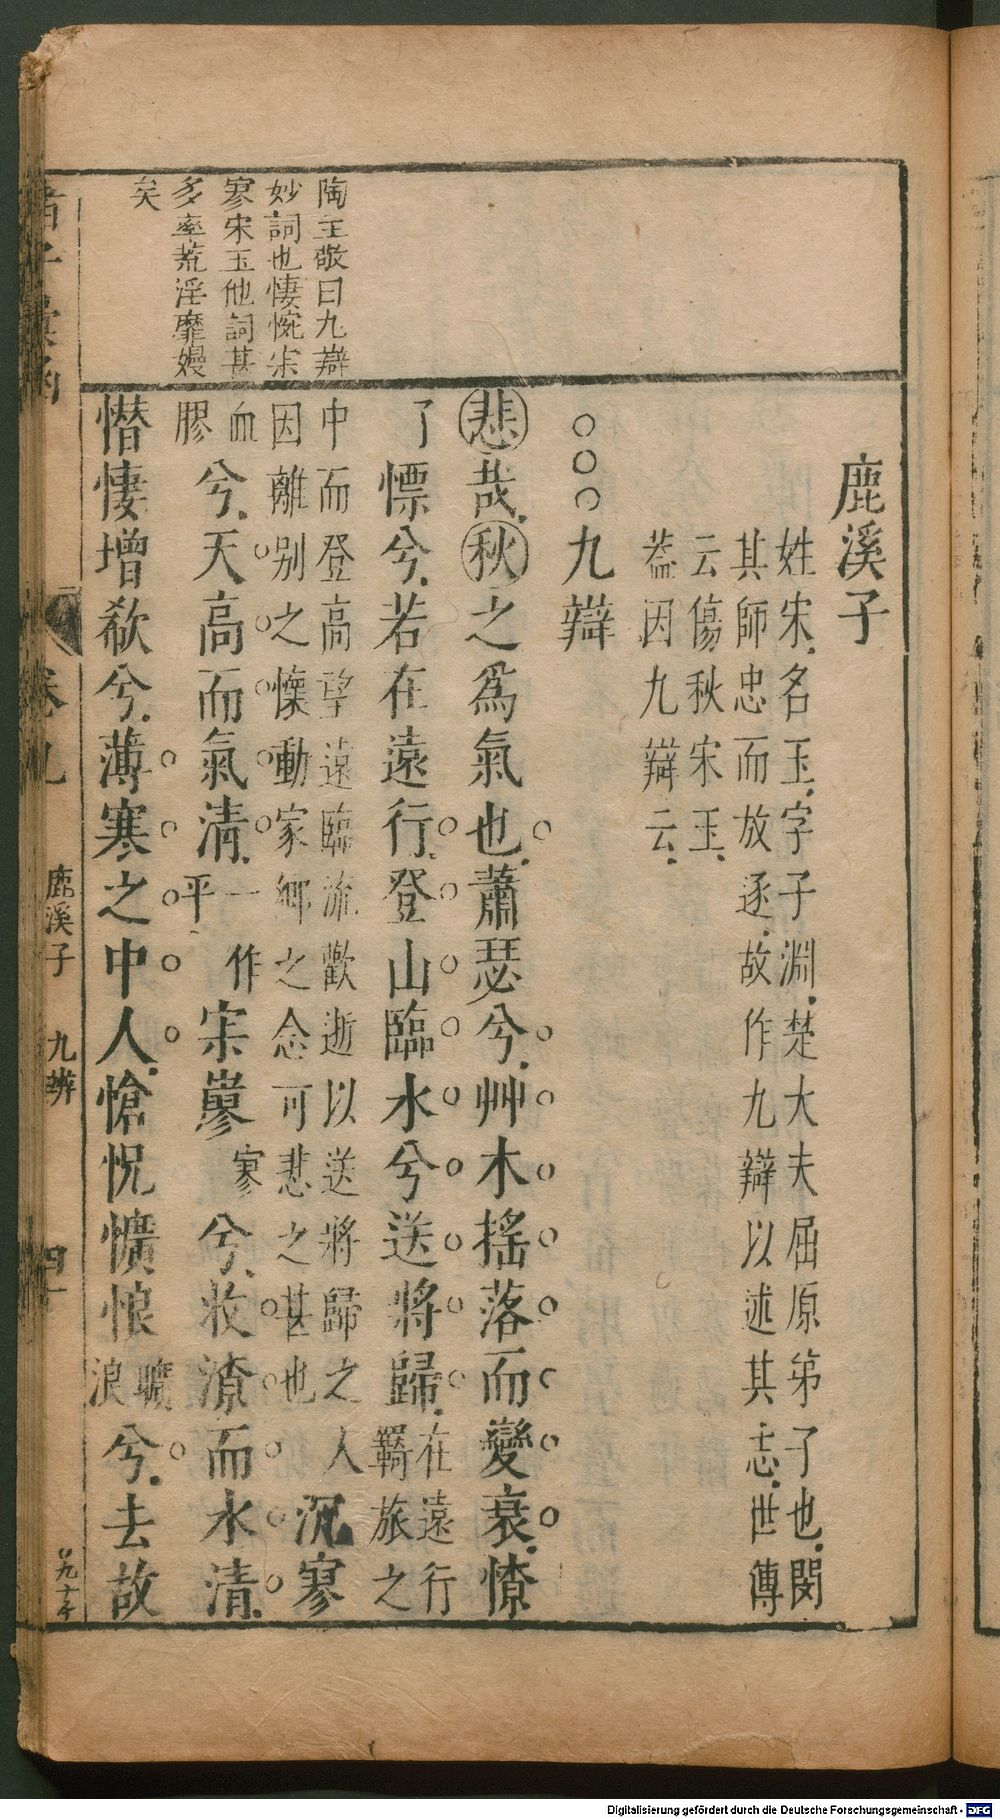 鹿溪子
姓宋名玉字子淵楚大夫屈原弟子也閔
其師忠而放逐故作九辯以述其志世傳
云傷秋宋玉
葢因九辯云
○○○九辯
悲哉秋之爲氣也蕭瑟兮艸木搖落而變衰憭
了慄兮若在遠行登山臨水兮送將歸在遠行羇旅之
中而登高望遠臨流歡逝以送將歸之人因離别之懆動家鄉之念可悲之甚也沉寥
血膠兮天高而氣清一作平宋㝫寥兮收潦而水清
憯悽增欷兮薄寒之中人愴怳懭悢曠浪兮去故
陶主敬曰九辯
妙詞也悽惋宋
寥宋玉他詞甚
多率荒淫靡嫚
矣
諸子彙函
卷九
鹿溪子 九辨
四十
Digitalisierung gefördert durch die Deutsche Forschungsgemeinschaft - DFG